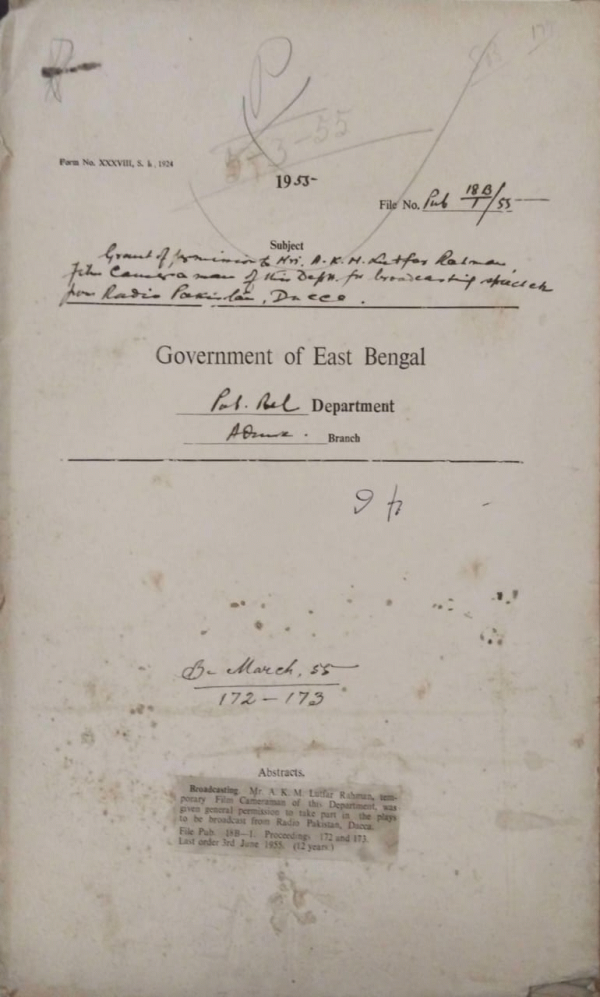 177
P
573-55
Form No. XXXVIII, S. b. 1924
1955-
File No. Pub 18B/1/55
Subject
Grant of permission to Mr. A. K. M. Lutfar Rahman,
film Cameraman of this Deptt. for broadcasting speech
from Radio Pakistan, Dacca.
Government of East Bengal
Pub. Rel Department
Branch
B- March, 55
172-173
Abstracts.
Broadcasting. Mr. A. K. M. Lutfar Rahman, tem-
porary Film Cameraman of this Department, was
given general permission to take part in the plays
to be broadcast from Radio Pakistan, Dacca.
File Pub. 18B—1. Proceedings 172 and 173.
Last order 3rd June 1955. (12 years.)